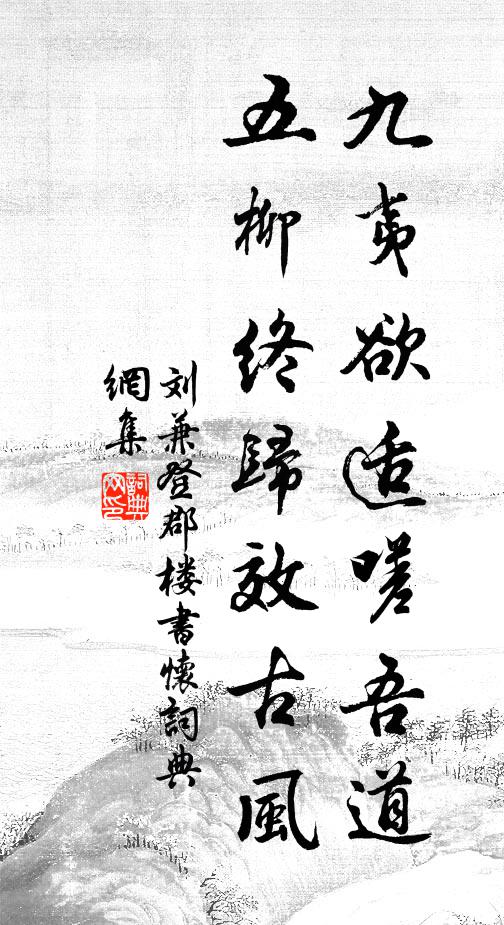 九夷欲适嗟吾道
五柳终歸效古風
刘兼登郡楼書懷詞典
網集
詞典
网印